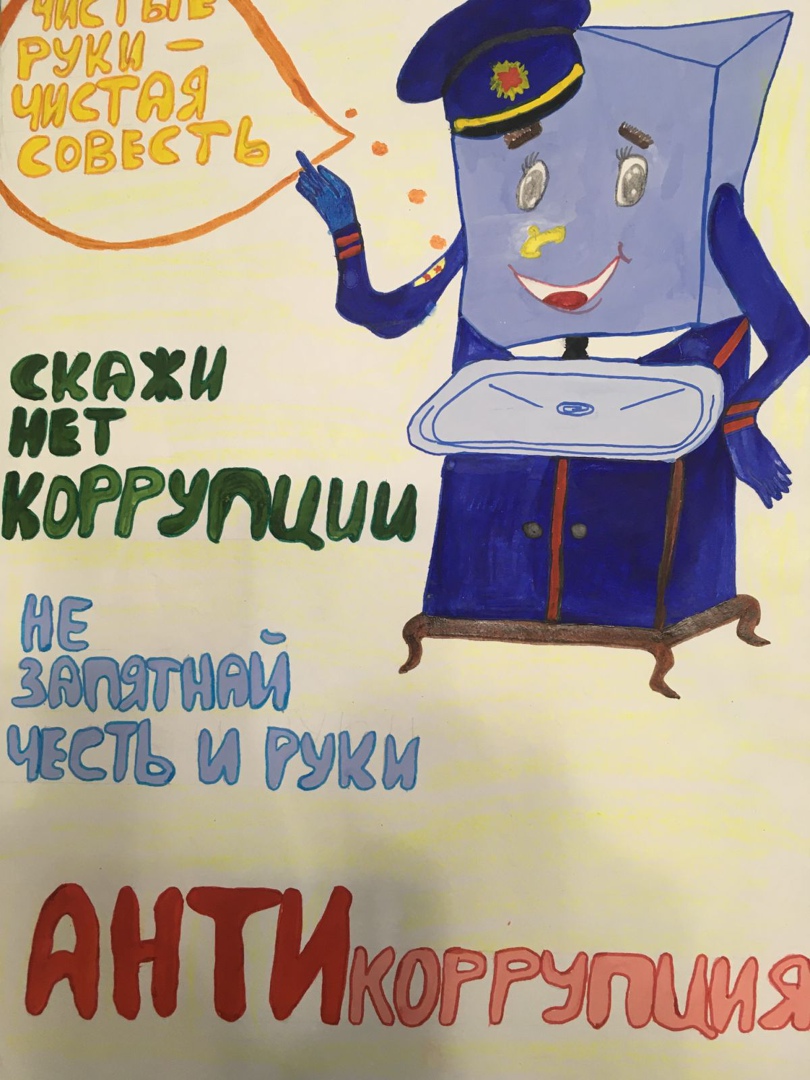 ЧИСТЫЕ
РУКИ –
ЧИСТАЯ
СОВЕСТЬ
СКАЖИ
НЕТ
КОРРУПЦИИ
НЕ
ЗАПЯТНАЙ
ЧЕСТЬ И РУКИ
АНТИКОРРУПЦИЯ